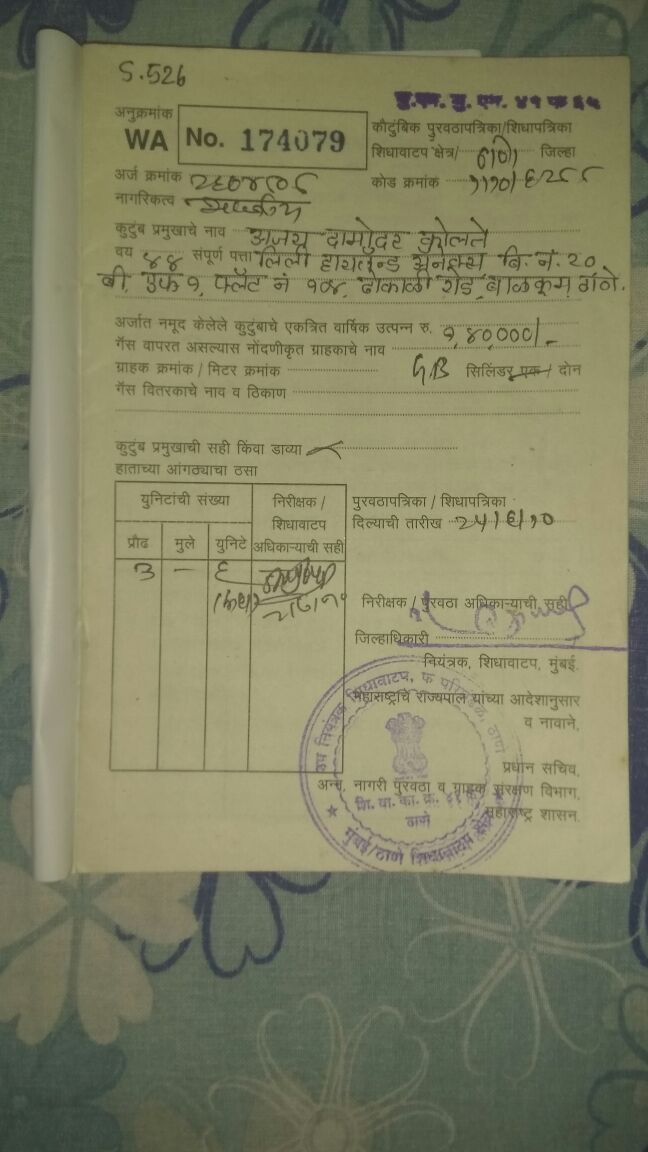 S.526
अनुक्रमांक
WA No. 174079
कौटुंबिक पुरवठापत्रिका/शिधापत्रिका
शिधावाटप क्षेत्र/ ठाणे जिल्हा
अर्ज क्रमांक
कोड क्रमांक
नागरिकत्व
कुटुंब प्रमुखाचे नाव अजय दामोदर कोलते
वय ४४ संपूर्ण पत्ता लिली हायलॅन्ड बि. नं. २०
बी, फ्लॅट नं १०४, ढोकाळी रोड, बाळकूम, ठाणे.
अर्जात नमूद केलेले कुटुंबाचे एकत्रित वार्षिक उत्पन्न रु. १,४०,०००/-
गॅस वापरत असल्यास नोंदणीकृत ग्राहकाचे नाव
ग्राहक क्रमांक / मिटर क्रमांक सिलिंडर एक / दोन
गॅस वितरकाचे नाव व ठिकाण
कुटुंब प्रमुखाची सही किंवा डाव्या
हाताच्या आंगठ्याचा ठसा
युनिटांची संख्या
निरीक्षक /
शिधावाटप
अधिकाऱ्याची सही
प्रौढ मुले युनिटे
३ — ६
पुरवठापत्रिका / शिधापत्रिका
दिल्याची तारीख
निरीक्षक / पुरवठा अधिकाऱ्याची सही
जिल्हाधिकारी
नियंत्रक, शिधावाटप, मुंबई.
महाराष्ट्राचे राज्यपाल यांच्या आदेशानुसार
व नावाने,
प्रधान सचिव,
अन्न, नागरी पुरवठा व ग्राहक संरक्षण विभाग,
महाराष्ट्र शासन.
ठाणे
मुंबई/ठाणे शिधावाटप क्षेत्र